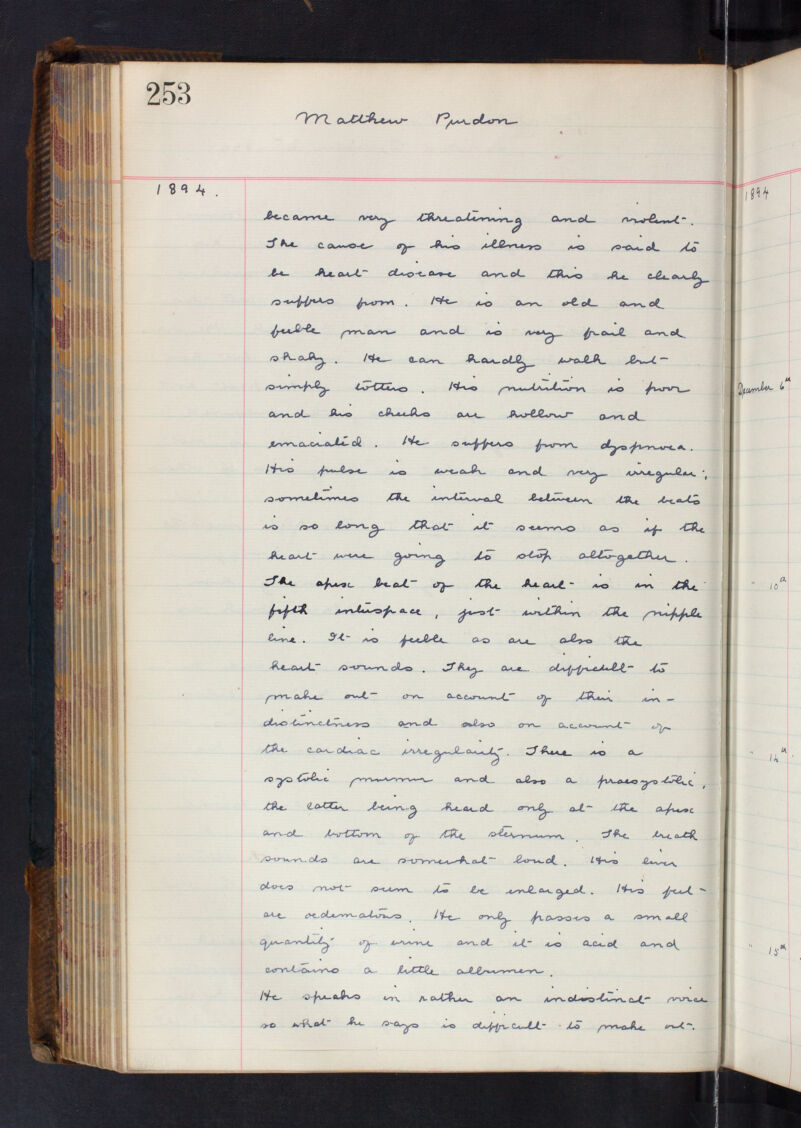 253
Matthew Purdon
1894.
became very threatening and violent.
The cause of his illness is said to
be heart disease and this he clearly
suffers from. He is an old and
feeble man and is very frail and
shaky. He can hardly walk but
simply totters. His nutrition is poor
and his cheeks are hollow and
emaciated. He suffers from dyspnoea.
His pulse is weak and very irregular;
sometimes the interval between the beats
is so long that it seems as if the
heart were going to stop altogether.
The apex beat of the heart is in the
fifth interspace, just within the nipple
line. It is feeble as are also the
heart sounds. They are difficult to
make out on account of their in-
distinctness and also on account of
the cardiac irregularity. There is a
systolic murmur and also a praesystolic,
the latter being heard only at the apex
and bottom of the sternum. The breath
sounds are somewhat loud. His liver
does not seem to be enlarged. His feet
are oedematous. He only passes a small
quantity of urine and it is acid and
contains a little albumen.
He speaks in rather an indistinct voice
so what he says is difficult to make out.
1894
December 6th
" 10th
" 14th
" 15th